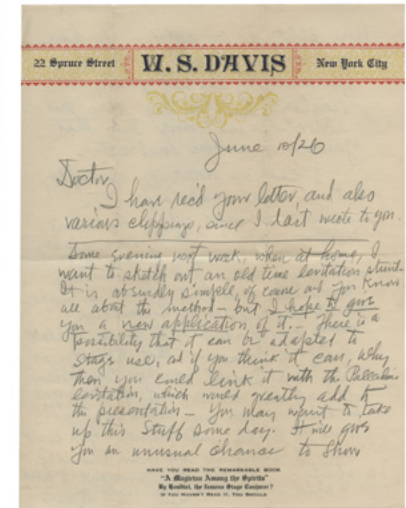 22 Spruce Street W. S. DAVIS New York City
June 10/26
Doctor,
I have rec'd your letter, and also
various clippings, since I last wrote to you.
Some evening next week, when at home, I
want to sketch out an old time levitation stunt.
It is absurdly simple, of course and you know
all about the method – but I hope to give
you a new application of it. – There is a
possibility that it can be adapted to
stage use, and if you think it can, why
then you could link it with the Palladino
levitation, which would greatly add to
the presentation – You may want to take
up this stuff some day. It will give
you an unusual chance to show
HAVE YOU READ THE REMARKABLE BOOK
"A Magician Among the Spirits"
By Houdini, the famous Stage Conjurer?
IF YOU HAVEN'T READ IT, YOU SHOULD